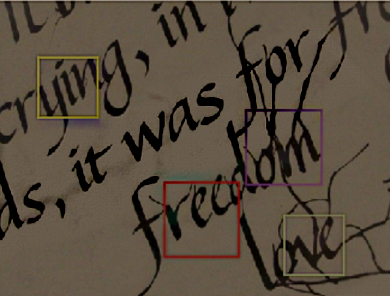 crying, in
ds, it was for
freedom
Love